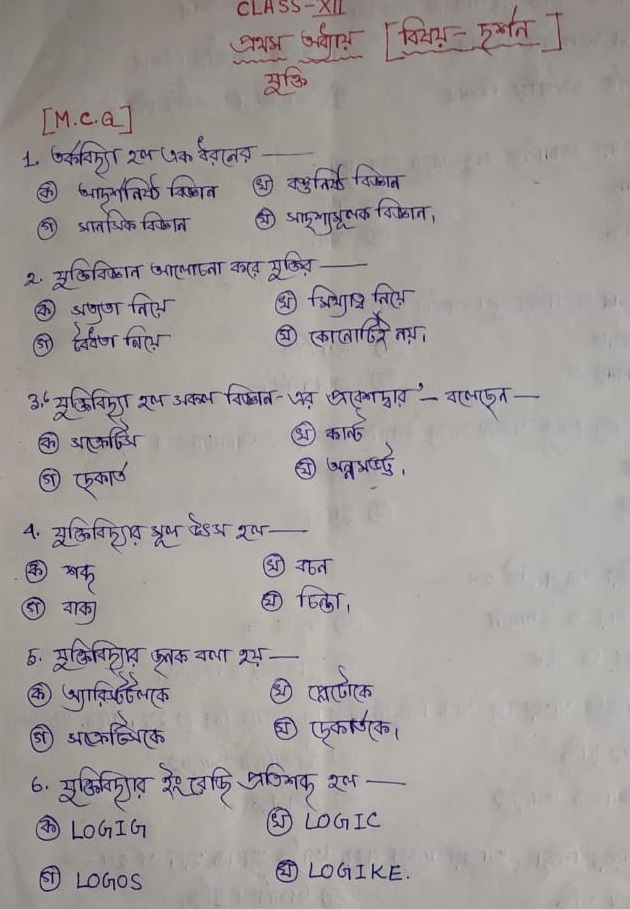 CLASS-XII
প্রথম অধ্যায় [বিষয়- দর্শন]
যুক্তি
[M.C.Q]
1. তর্কবিদ্যা হল এক ধরনের —
ক আদর্শনিষ্ঠ বিজ্ঞান খ বস্তুনিষ্ঠ বিজ্ঞান
গ মানসিক বিজ্ঞান ঘ সাদৃশ্যমূলক বিজ্ঞান।
2. যুক্তিবিজ্ঞান আলোচনা করে যুক্তির —
ক সত্যতা নিয়ে খ মিথ্যাত্ব নিয়ে
গ বৈধতা নিয়ে ঘ কোনোটিই নয়।
3. 'যুক্তিবিদ্যা হল সকল বিজ্ঞান-এর প্রবেশদ্বার' – বলেছেন —
ক সক্রেটিস খ কান্ট
গ ডেকার্ত ঘ
4. যুক্তিবিদ্যার মূল উৎস হল —
ক শব্দ খ বচন
গ বাক্য ঘ চিন্তা।
5. যুক্তিবিদ্যার জনক বলা হয় —
ক অ্যারিস্টটলকে খ প্লেটোকে
গ সক্রেটিসকে ঘ ডেকার্তকে।
6. যুক্তিবিদ্যার ইংরেজি প্রতিশব্দ হল —
ক LOGIG খ LOGIC
গ LOGOS ঘ LOGIKE.